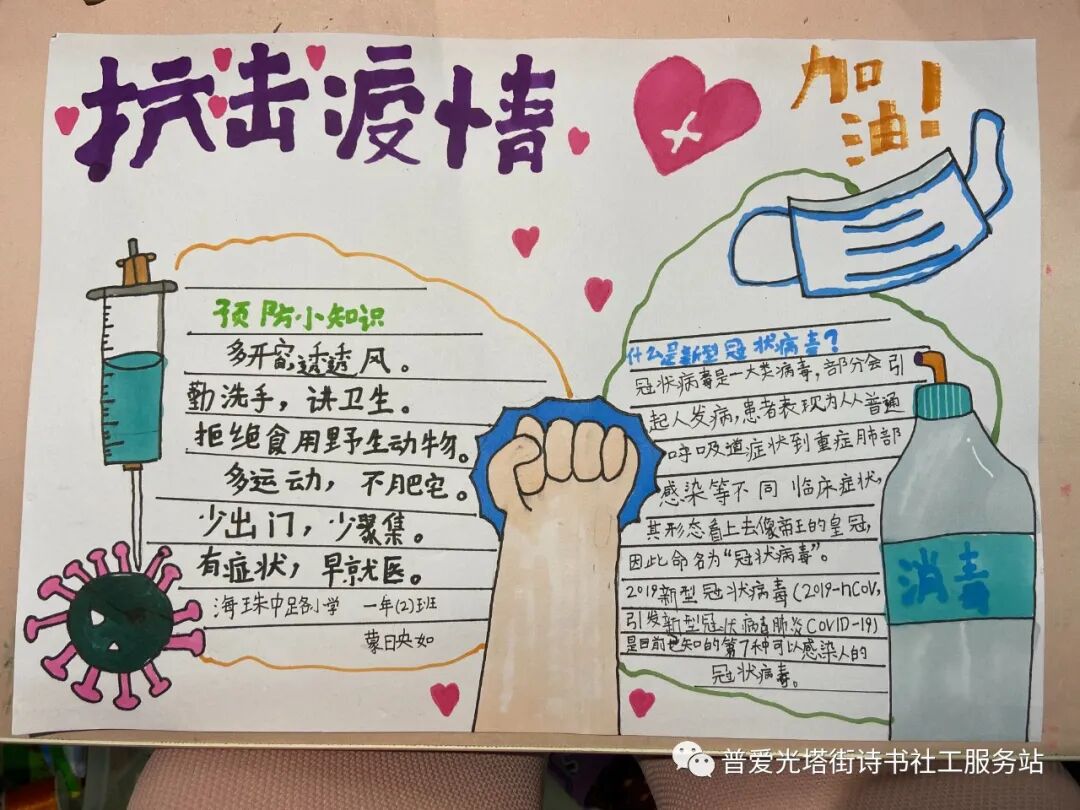 抗击疫情
加
油!
预防小知识
多开窗透透风。
勤洗手，讲卫生。
拒绝食用野生动物。
多运动，不肥宅。
少出门，少聚集。
有症状，早就医。
海珠中路小学 一年(2)班
蒙日央如
什么是新型冠状病毒?
冠状病毒是一大类病毒，部分会引
起人发病，患者表现为从普通
呼吸道症状到重症肺部
感染等不同临床症状，
其形态看上去像帝王的皇冠，
因此命名为“冠状病毒”。
2019新型冠状病毒(2019-nCoV，
引发新型冠状病毒肺炎COVID-19)
是目前已知的第7种可以感染人的
冠状病毒。
消毒
普爱光塔街诗书社工服务站